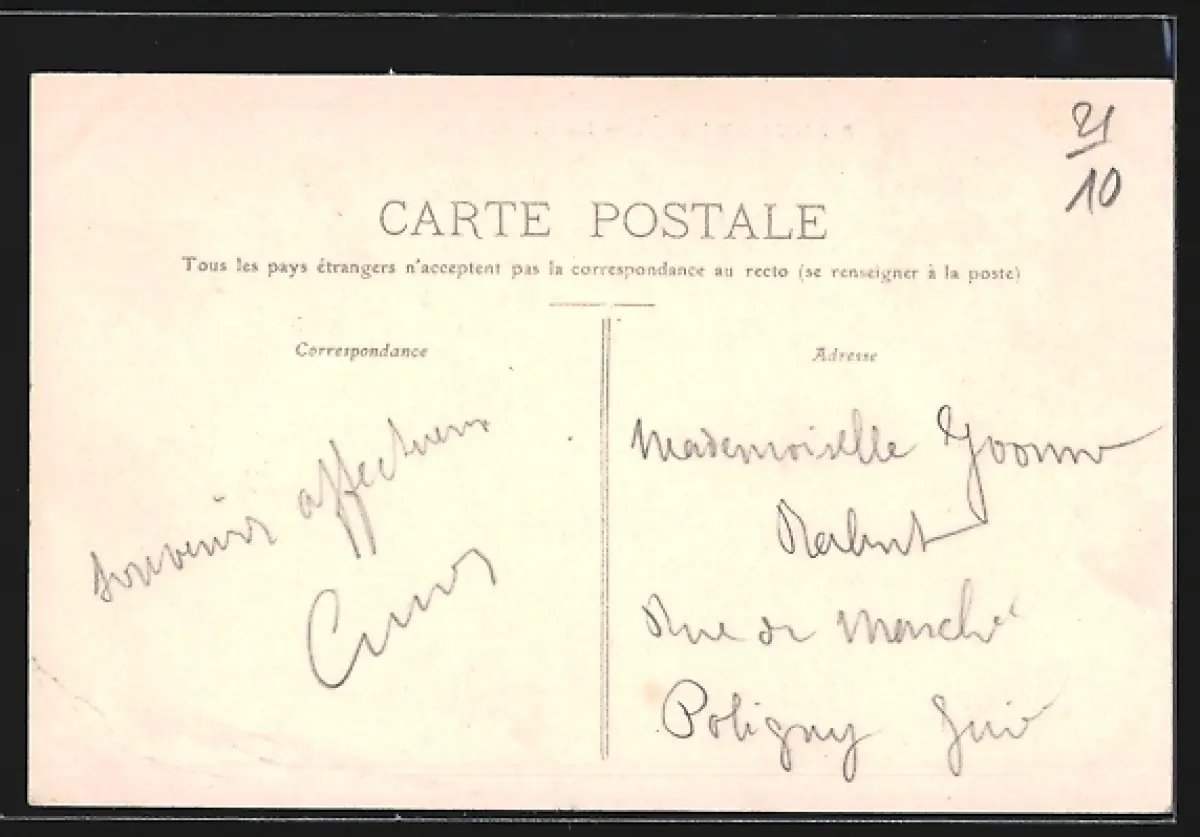 21
10
CARTE POSTALE
Tous les pays étrangers n'acceptent pas la correspondance au recto (se renseigner à la poste)
Correspondance
Adresse
souvenir affectueux
Mademoiselle Yvonne
Rue du Marché
Poligny Jura